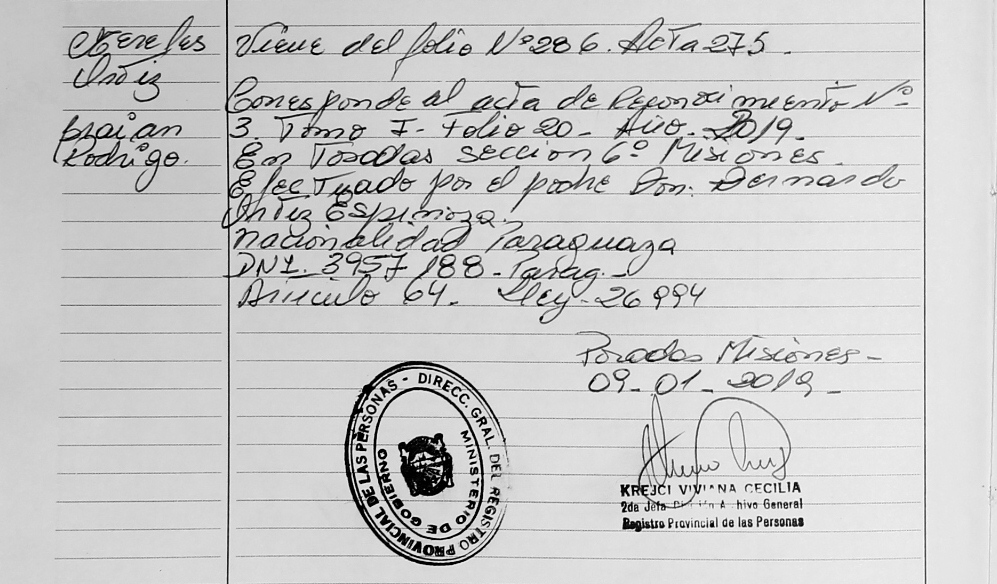 Ortiz
Braian
Rodrigo.
Viene del folio Nº 286. Acta 275.
Corresponde al acta de Reconocimiento Nº
3. Tomo I - Folio 20 - Año - 2019 -
En Posadas seccion 6º Misiones.
Efectuado por el padre Don: Bernardo
Ortiz Espinoza.
nacionalidad Paraguaya
DNI. 3957188 - Parag. -
Articulo 64. Ley - 26994
Posadas Misiones -
09 - 01 - 2019 -
REGISTRO PROVINCIAL DE LAS PERSONAS - DIRECC. GRAL. DEL
MINISTERIO DE GOBIERNO
KREJCI VIVIANA CECILIA
2da Jefa General
Registro Provincial de las Personas